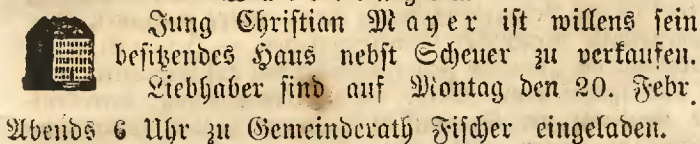 Jung Christian Mayer ist willens sein
besitzendes Haus nebst Scheuer zu verkaufen.
Liebhaber sind auf Montag den 20. Febr
Abends 6 Uhr zu Gemeinderath Fischer eingeladen.